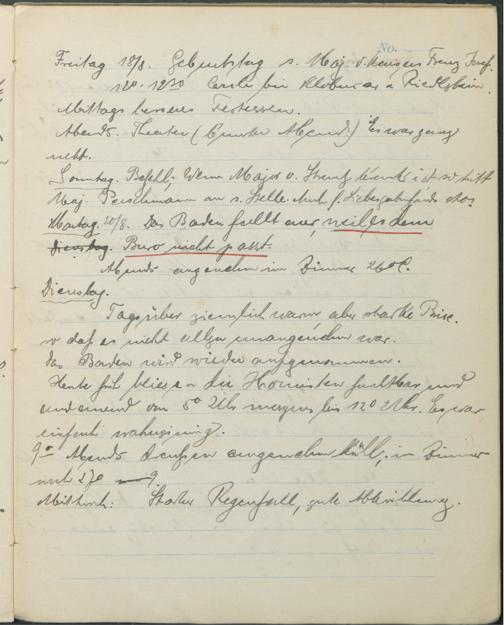 No.
Freitag 18/8. Geburtstag s. Maj. v. Kaiser Franz Josef.
Mittags besseres Festessen.
Abends. Theater (Bunter Abend.) Es war ganz
nett.
Sonntag. Befehl: Wenn Major v. Strantz krank ist so tritt
Maj. an s. Stelle
Montag. 20/8. Das Baden fällt aus, weil es dem
Dienstag. Büro nicht passt.
Abends angenehm im Zimmer 26° C.
Dienstag.
Tagsüber ziemlich warm aber starke Brise.
so daß es nicht allzu unangenehm war.
Das Baden wird wieder aufgenommen.
Heute früh bliesen die Hornisten furchtbar und
andauernd von 5° Uhr morgens bis 12° Uhr. Es war
einfach wahnsinnig.
9° Abends draußen angenehm kühl, im Zimmer
noch 27°
Mittwoch: Starker Regenfall, gute Abkühlung.